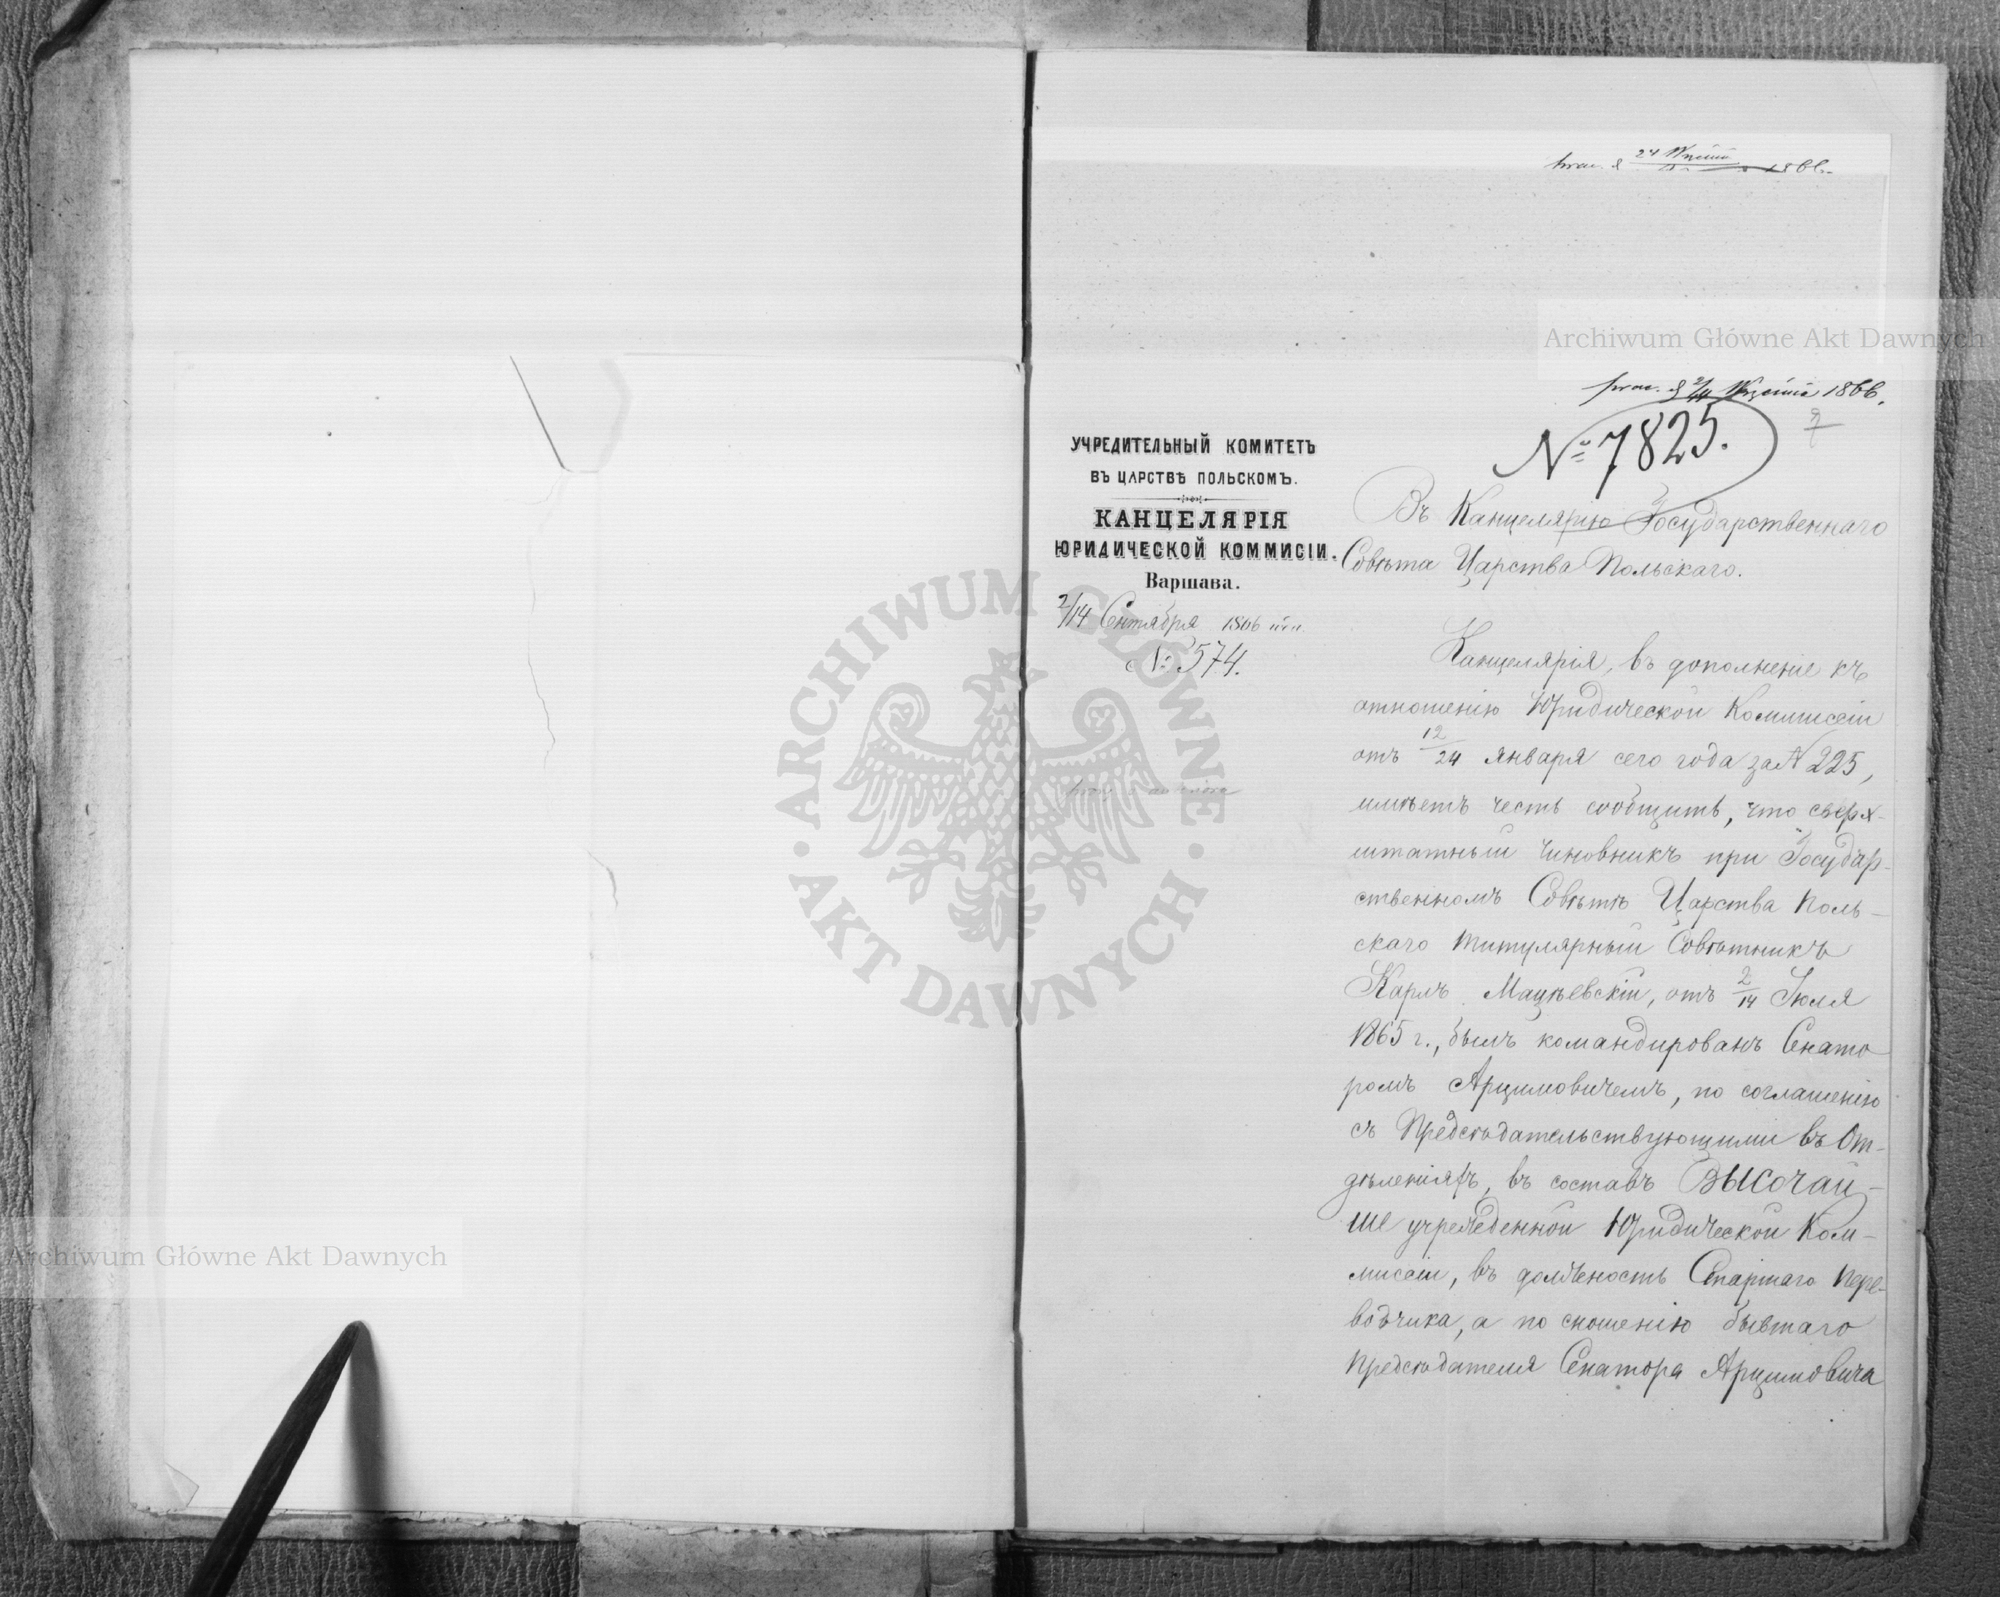 1866.
Archiwum Główne Akt Dawnych
prae. d 2/14 Września 1866.
№ 7825.
7
УЧРЕДИТЕЛЬНЫЙ КОМИТЕТЪ
ВЪ ЦАРСТВѢ ПОЛЬСКОМЪ.
КАНЦЕЛЯРІЯ
ЮРИДИЧЕСКОЙ КОММИСІИ.
Варшава.
2/14 Сентября 1866
№ 574.
Въ Канцелярію Государственнаго
Совѣта Царства Польскаго.
Канцелярія, въ дополненіе къ
отношенію Юридической Коммисіи
отъ 12/24 января сего года за № 225,
имѣетъ честь сообщить, что сверх-
штатный чиновникъ при Государ-
ственномъ Совѣтѣ Царства Поль-
скаго Титулярный Совѣтникъ
Карлъ Мацѣевскій, отъ 2/14 Іюля
1865 г., былъ командированъ Сенато
ромъ Арцимовичемъ, по соглашенію
съ Предсѣдательствующими въ От-
дѣленіяхъ, въ составъ ВЫСОЧАЙ-
ШЕ учрежденной Юридической Ком-
мисіи, въ должность Старшаго Пере-
водчика, а по сношенію бывшаго
Предсѣдателя Сенатора Арцимовича
ARCHIWUM GŁÓWNE
AKT DAWNYCH
Archiwum Główne Akt Dawnych